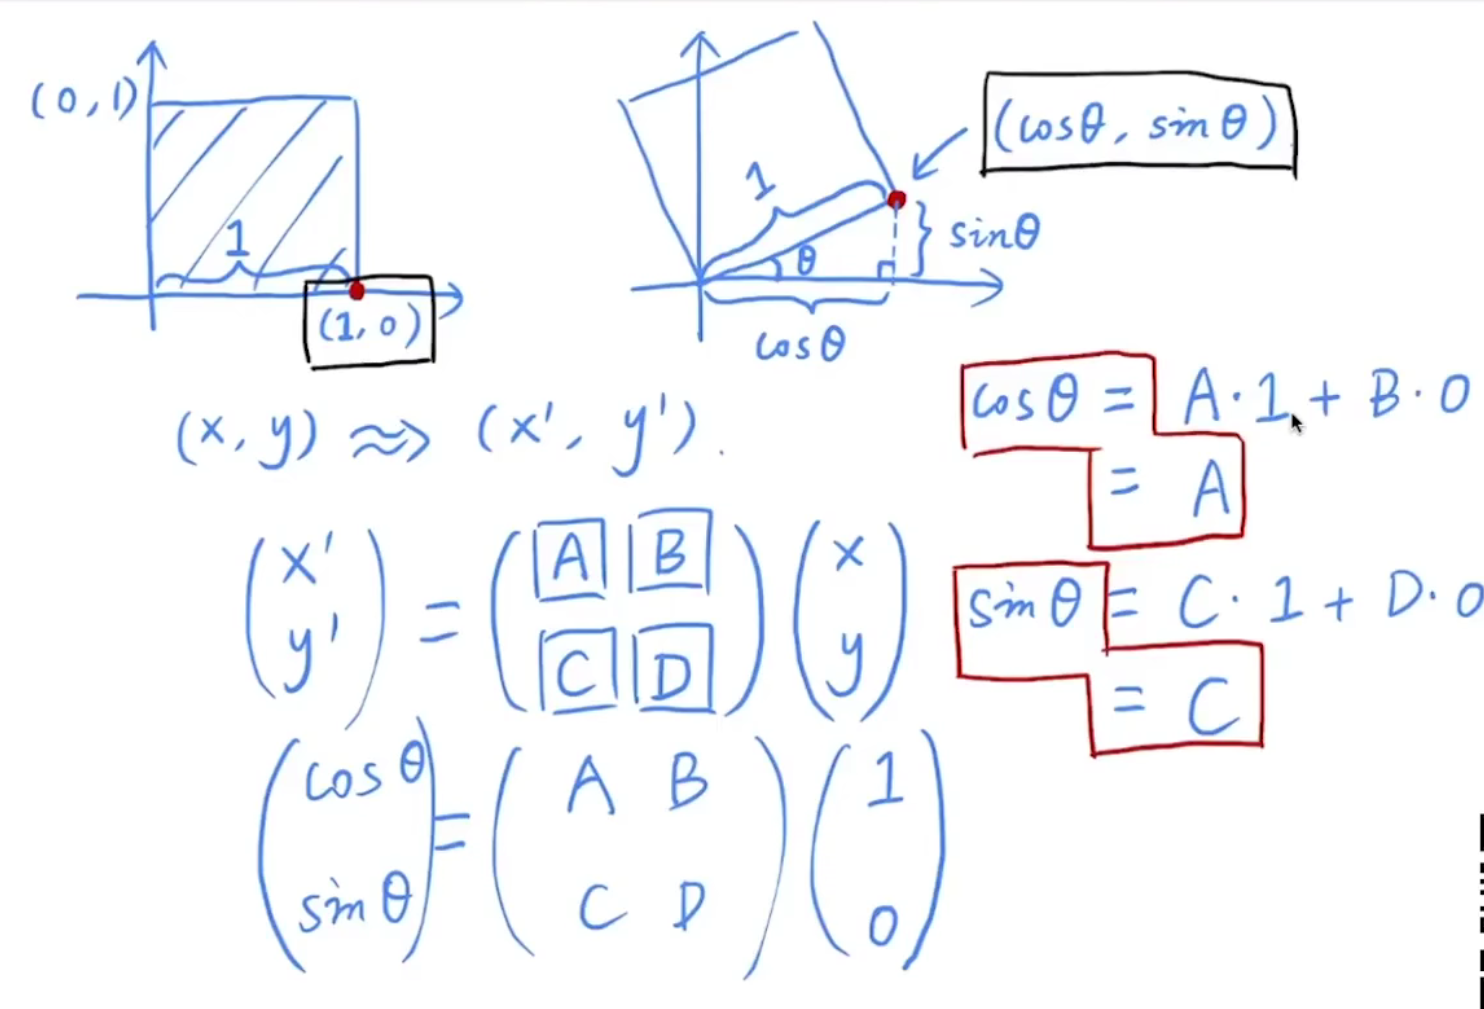 (0,1)
1
(1,0)
1
θ
(cosθ, sinθ)
sinθ
cosθ
(x,y) ⇝ (x', y').
(x' y') = (A B C D) (x y)
(cosθ sinθ) = (A B C D) (1 0)
cosθ = A·1 + B·0
= A
sinθ = C·1 + D·0
= C